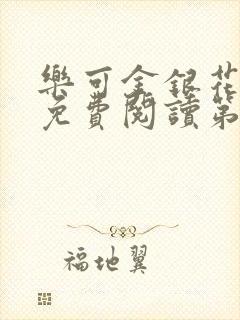 樂可金銀花
免費閱讀第
福地翼